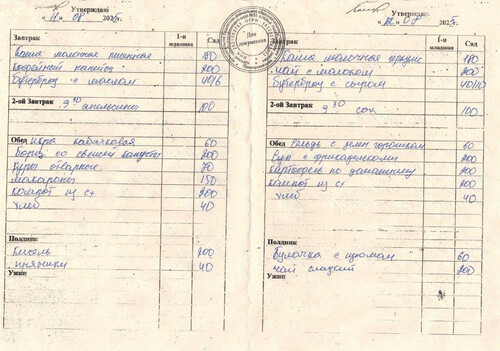 Утверждаю
"11" 08
Завтрак 1-я младшая Сад
Каша молочная пшенная 180
Кофейный напиток 200
Бутерброд с маслом 40/6
2-ой Завтрак 9 30 апельсины 100
Обед Икра кабачковая 60
Борщ со свежей капусты 200
Куры отварные 70
макароны 150
компот из с/х 200
хлеб 40
Полдник
Кисель 200
пряники 40
Ужин
Для документов
Утверждаю
08
Завтрак 1-я младшая Сад
Каша молочная 180
чай с молоком 200
бутерброд с сыром 40/10
2-ой Завтрак 9 30 сок 100
Обед Сельдь с зелен горошком 60
Суп с фрикадельками 200
картофель по домашнему 200
компот из с/х 200
хлеб 40
Полдник
Булочка с изюмом 60
чай сладкий 200
Ужин